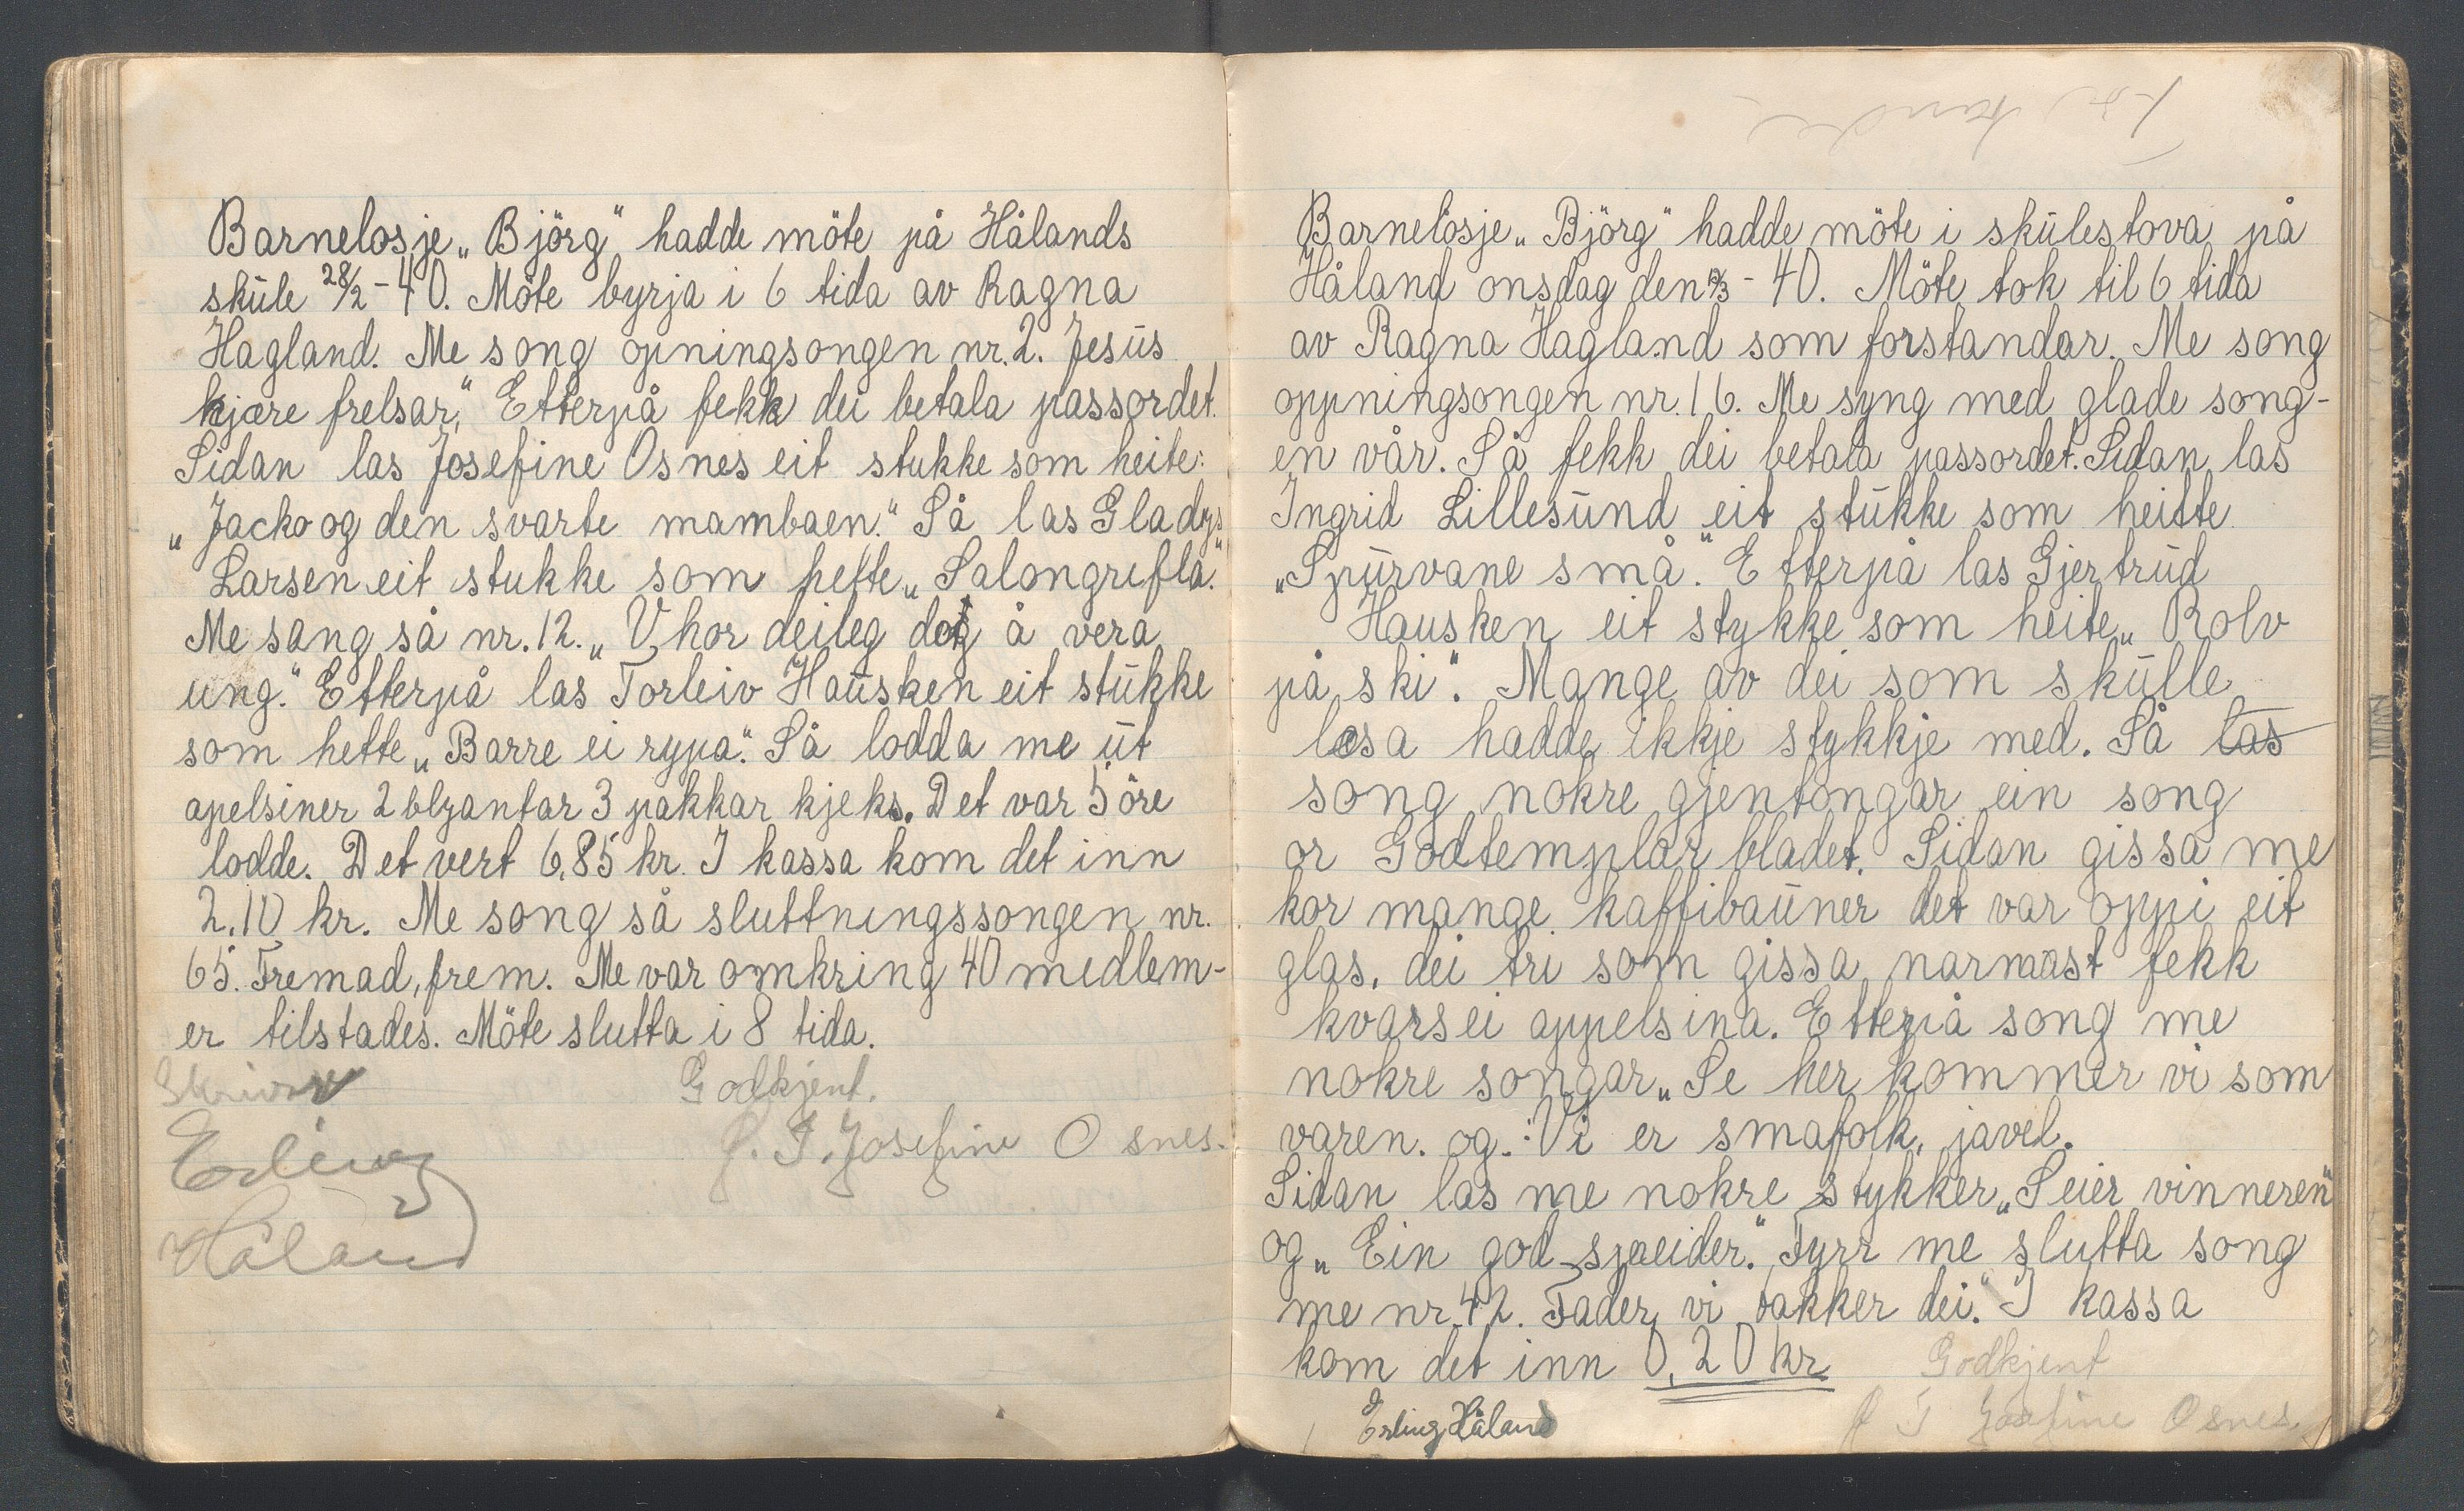 Barnelosje „Björg" hadde möte på Hålands
skule 28/2-40. Möte byrja i 6 tida av Ragna
Hagland. Me song opningsongen nr. 2. Jesus
kjære frelsar." Etterpå fekk dei betala passordet.
Sidan las Josefine Osnes eit stukke som heite:
„Jacko og den svarte mambaen." Så las Gladys
Larsen eit stukke som hette „Salongrifla."
Me sang så nr. 12. „ hor deileg det å vera
ung." Etterpå las Torleiv Hausken eit stukke
som hette „Barre ei rypa." Så lodda me ut
apelsiner 2 blyantar 3 pakkar kjeks. Det var 5 öre
lodde. Det vert 6,85 kr. I kassa kom det inn
2.10 kr. Me song så sluttningssongen nr.
65. Fremad, frem. Me var omkring 40 medlem-
er tilstades. Möte slutta i 8 tida.
Skrivar Godkjent.
Erling J. T. Josefine Osnes.
Håland
Barnelosje „Björg" hadde möte i skulestova på
Håland onsdag den -40. Möte tok til 6 tida
av Ragna Hagland som forstandar. Me song
oppningsongen nr. 16. Me syng med glade song-
en vår. Så fekk dei betala passordet. Sidan las
Ingrid Lillesund eit stukke som heitte
„Spurvane små." Etterpå las Gjertrud
Hausken eit stykke som heite „Rolv
på ski". Mange av dei som skulle
lesa hadde ikkje stykkje med. Så las
song nokre gjentongar ein song
or Godtemplar bladet. Sidan gissa me
kor mange kaffibauner det var oppi eit
glas. dei tri som gissa narmast fekk
kvarsei appelsina. Etterpå song me
nokre songar „Se her kommer vi som
varen. og: Vi er smafolk, javel.
Sidan las me nokre stykker „Seier vinneren"
og „Ein god speider." Fyrr me slutta song
me nr. 42. Fader vi takker dei." I kassa
kom det inn 0,20 kr. Godkjent
Erling Håland J T Josefine Osnes